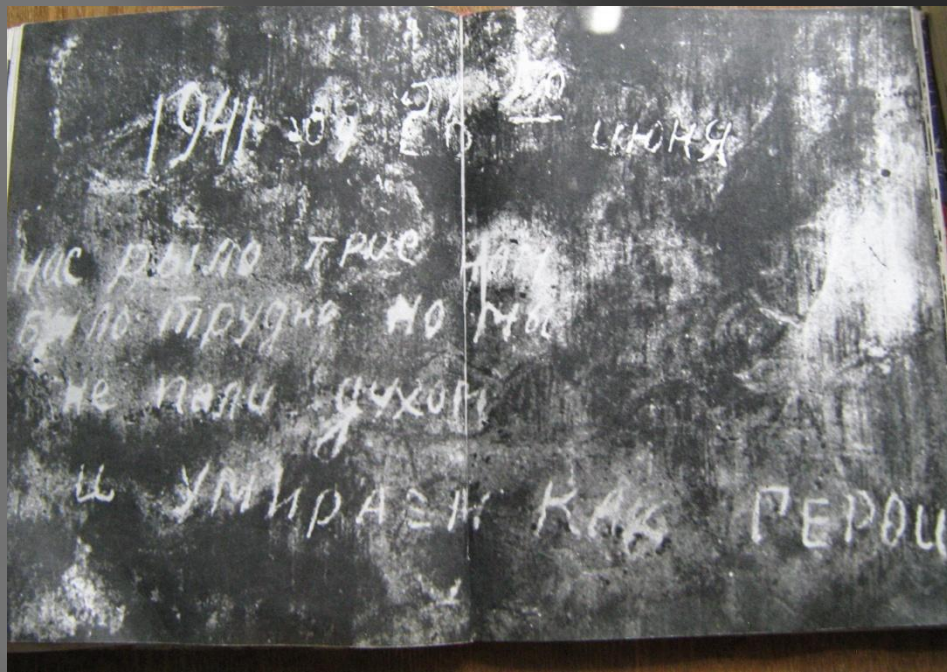 1941 год 26 го июня
нас было трое нам
было трудно но мы
не пали духом
и УМИРАЕМ КАК ГЕРОИ